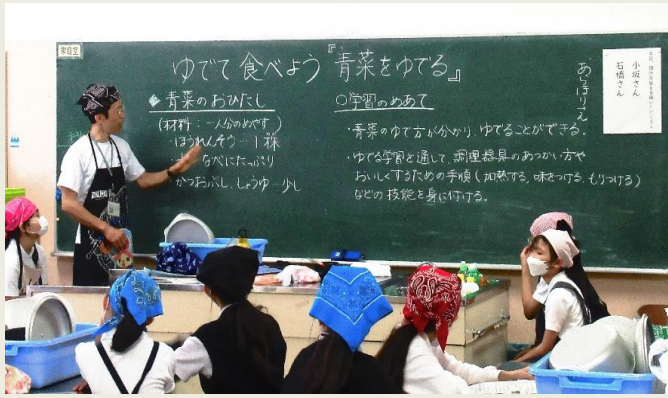 家庭室
ゆでて食べよう『青菜をゆでる』
◆青菜のおひたし
(材料:一人分のめやす)
・ほうれんそう…1株
なべにたっぷり
かつおぶし、しょうゆ…少し
○学習のめあて
・青菜のゆで方が分かり、ゆでることができる。
・ゆでる学習を通して、調理器具のあつかい方や
おいしくするための手順(加熱する、味をつける、もりつける)
などの技能を身に付ける。
小坂さん
石橋さん